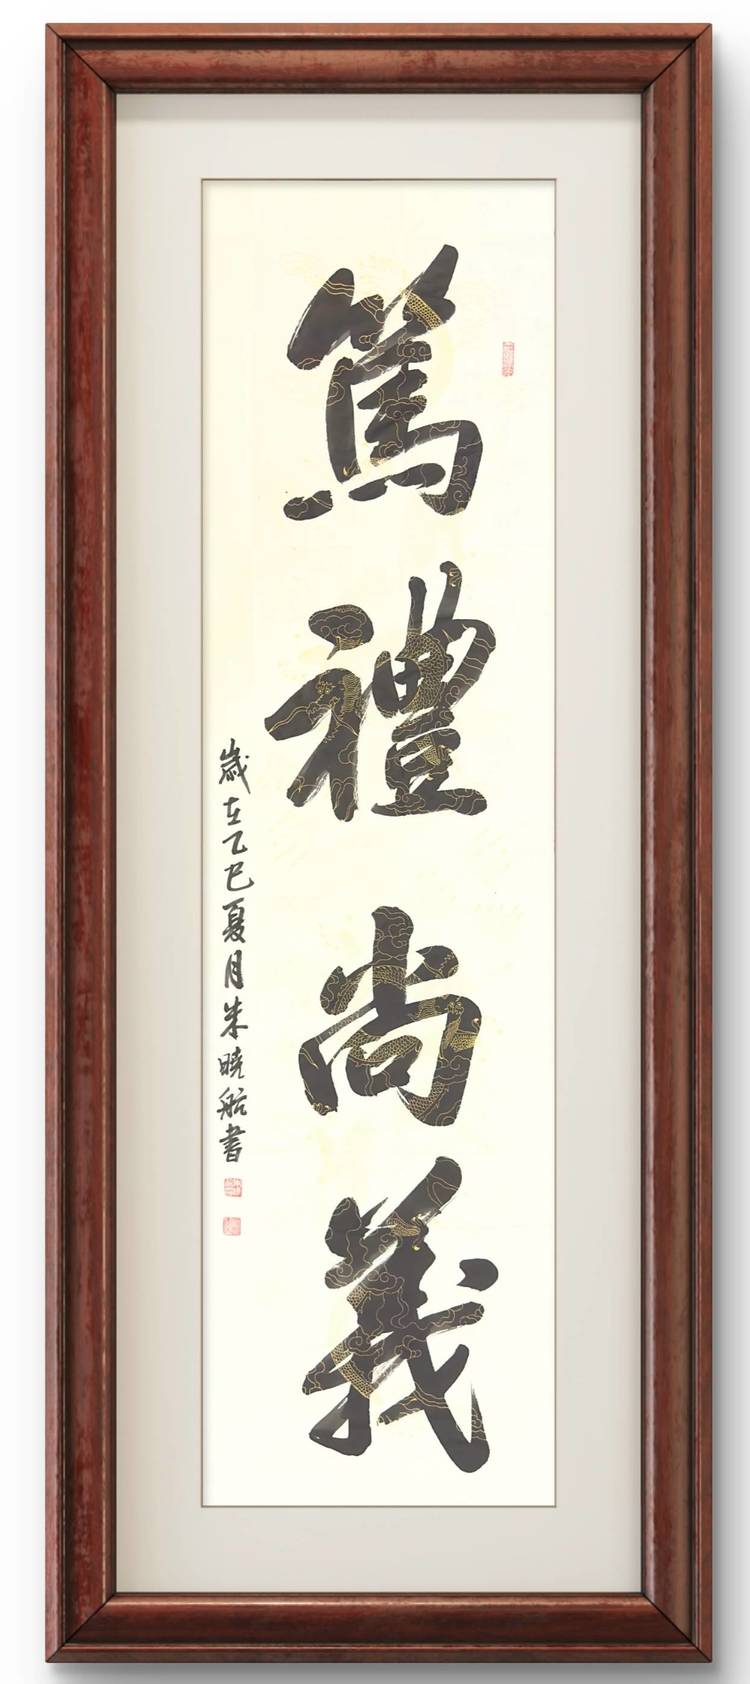 篤禮尚義
歲在乙巳夏月朱曉舩書